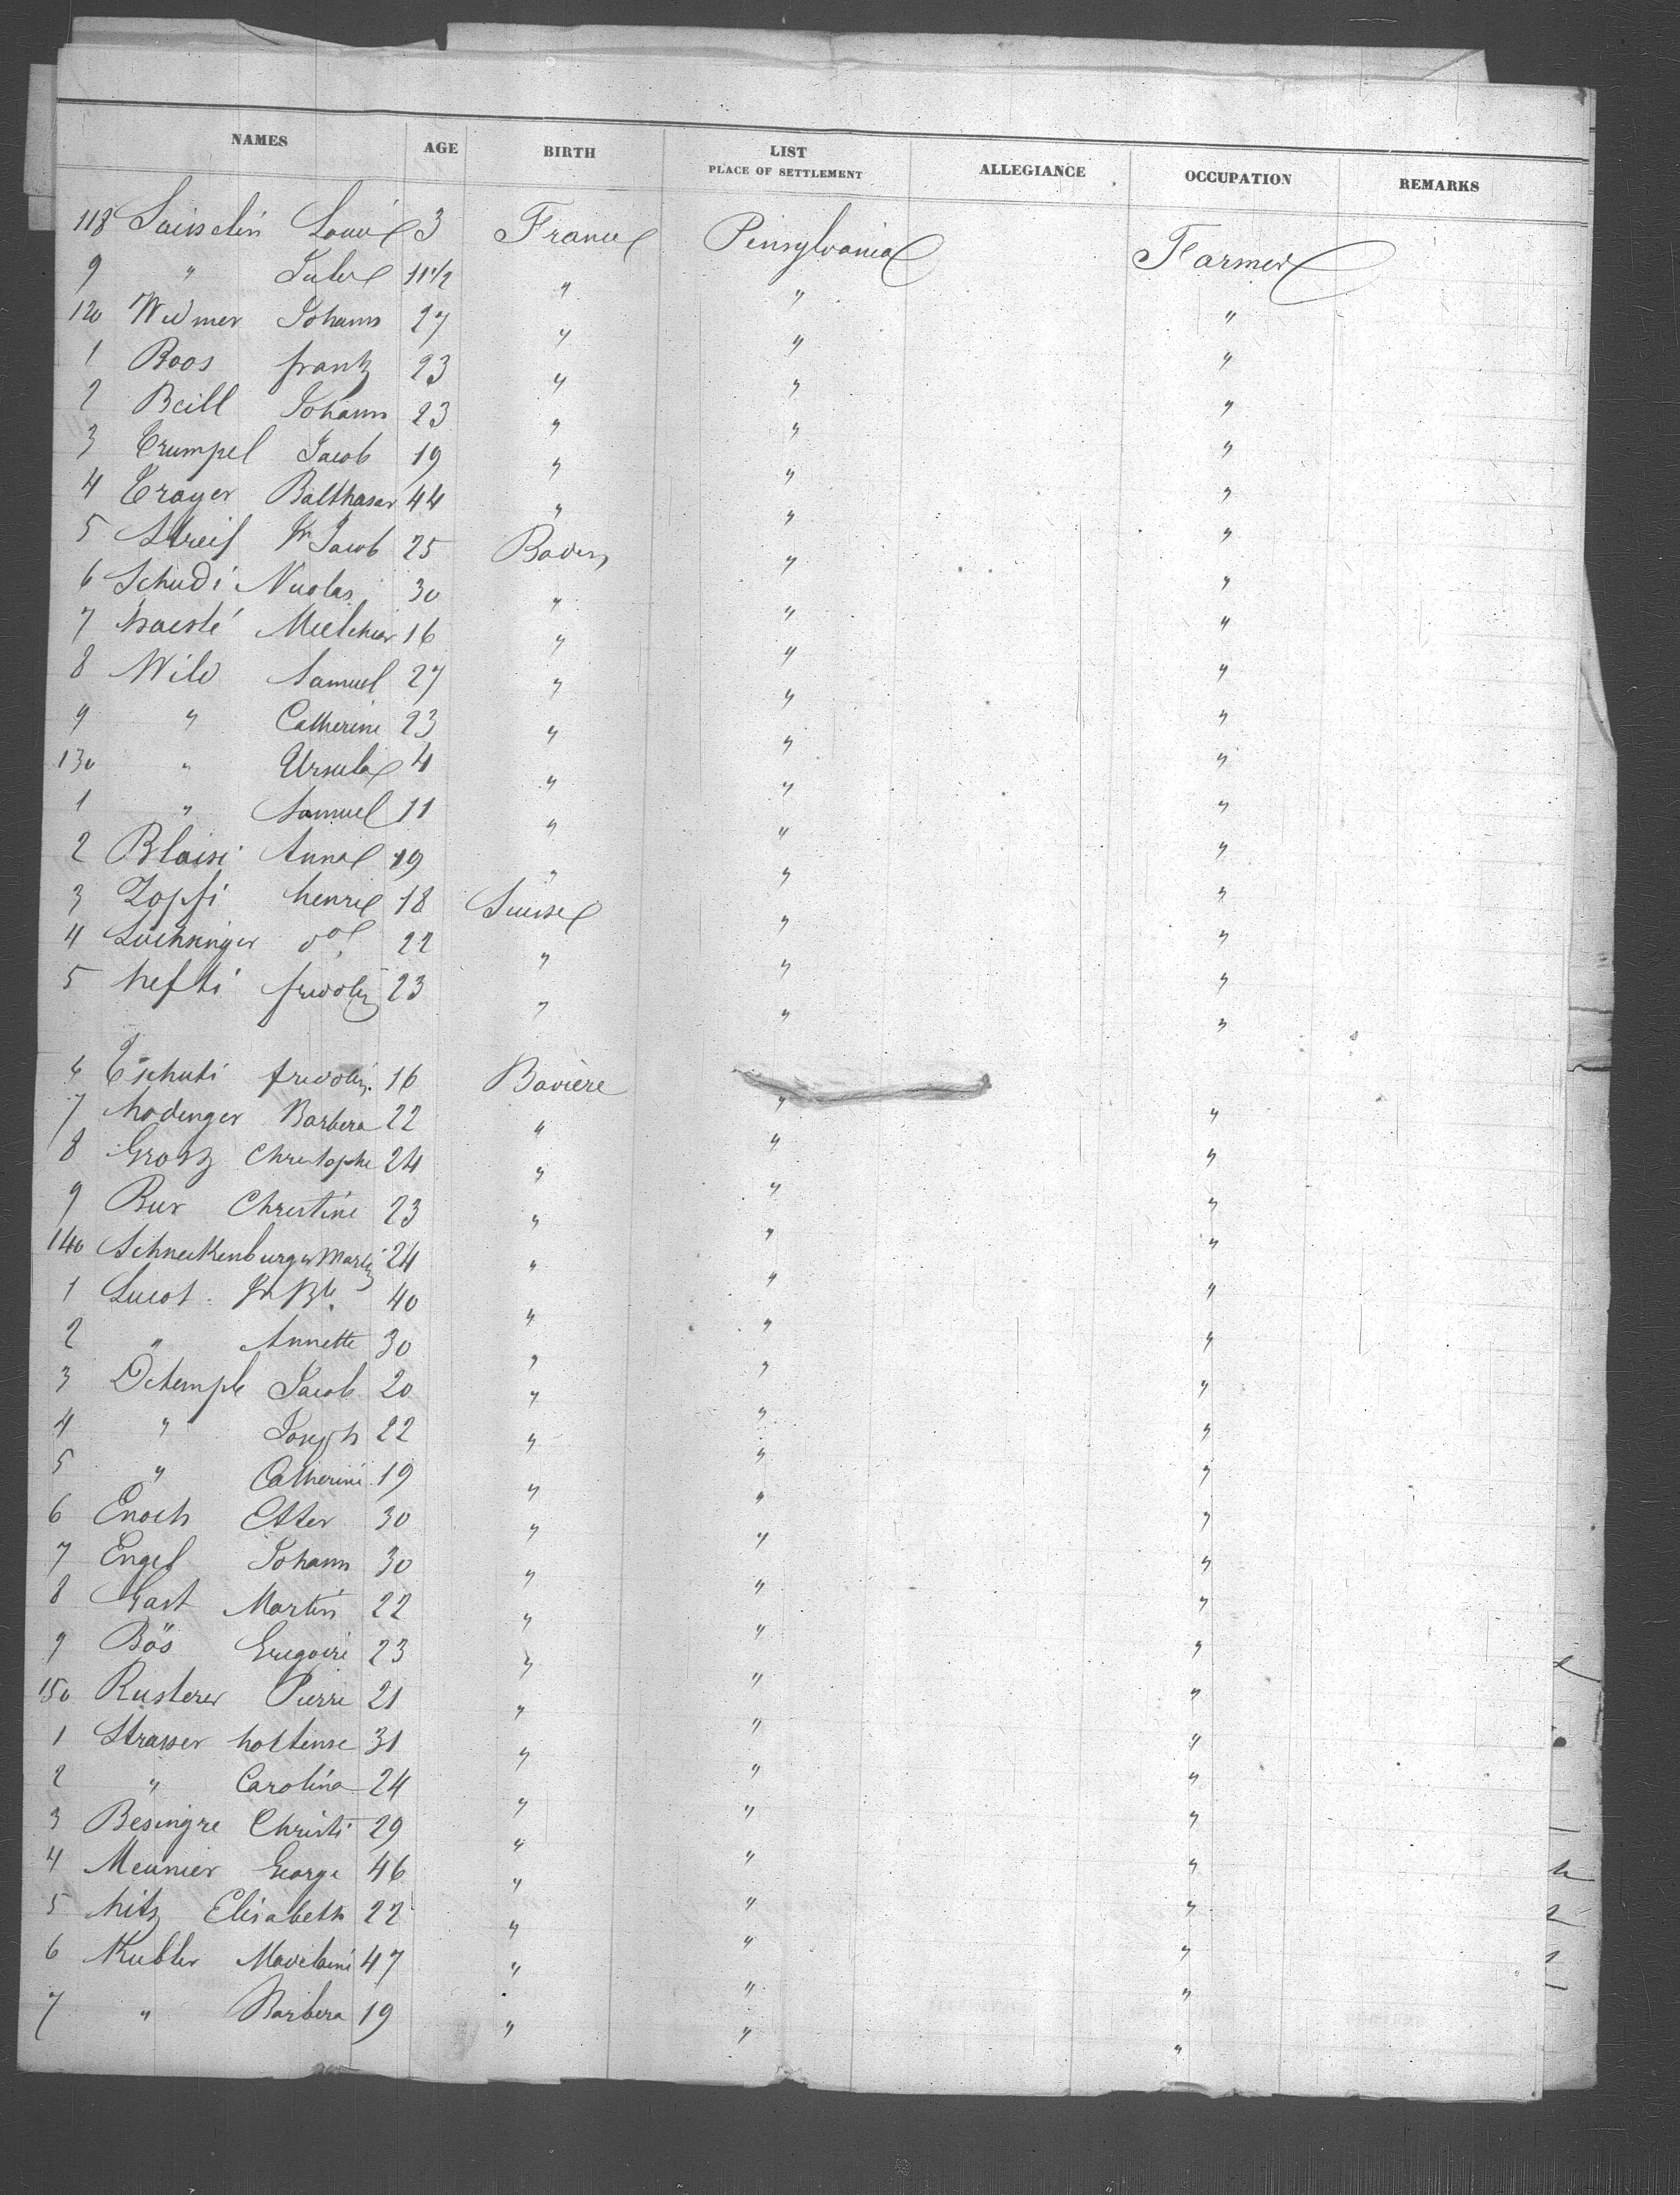 NAMES AGE BIRTH LIST PLACE OF SETTLEMENT ALLEGIANCE OCCUPATION REMARKS
118 Louise 3 France Pensylvania Farmer
9 " 11 1/2 " " "
120 Widmer Johann 27 " " "
1 Boos frantz 23 " " "
2 Beill Johann 23 " " "
3 Crumpel Jacob 19 " " "
4 Crayer Balthasar 44 " " "
5 Streif Jn Jacob 25 Baden " "
6 Schudi Nicolas 30 " " "
7 Melchior 16 " " "
8 Wild Samuel 27 " " "
9 " Catherine 23 " " "
130 " Ursula 4 " " "
1 " Samuel 11 " " "
2 Blaisi Anna 19 " " "
3 Zopfi henrie 18 Suisse " "
4 Luchsinger do 22 " " "
5 hefti fridolin 23 " " "
6 Tschuti fridolin 16 Bavière " "
7 hodinger Barbera 22 " " "
8 Grosz Christophe 24 " " "
9 Bur Christine 23 " " "
140 Schneckenburger Martin 24 " " "
1 Lucot Jn Bte 40 " " "
2 " Annette 30 " " "
3 Dchemple Jacob 20 " " "
4 " Joseph 22 " " "
5 " Catherine 19 " " "
6 Enoch Etter 30 " " "
7 Engel Johann 30 " " "
8 Gast Martin 22 " " "
9 Bös Gregoire 23 " " "
150 Rusterer Pierre 21 " " "
1 Strasser hortense 31 " " "
2 " Carolina 24 " " "
3 Besingre Christi 29 " " "
4 Meunier George 46 " " "
5 hitz Elisabeth 22 " " "
6 Kubler Madelaine 47 " " "
7 " Barbera 19 " " "